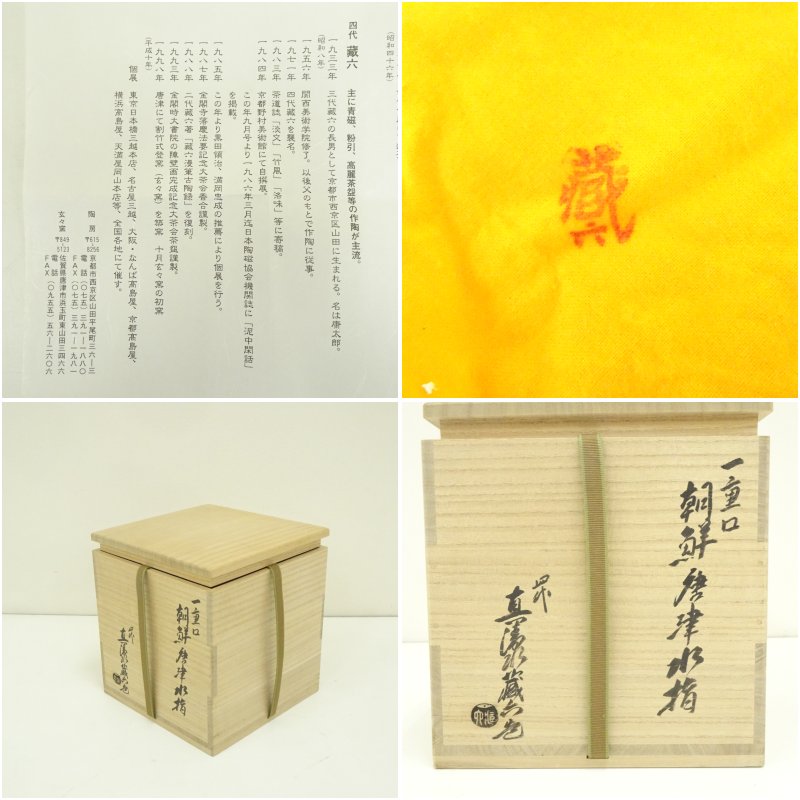 (昭和四十六年)
四代 藏六
主に青磁、粉引、高麗茶盌等の作陶が主流。
一九三三年 三代藏六の長男として京都市西京区山田に生まれる。名は唐太郎。
(昭和八年)
一九五六年 関西美術学院修了。以後父のもとで作陶に従事。
一九七一年 四代藏六を襲名。
一九八三年 茶道誌「淡交」「竹風」「洛味」等に寄稿。
一九八四年 京都野村美術館にて自撰展。
この年九月号より一九八六年三月迄日本陶磁協会機関誌に「泥中閑話」
を掲載。
一九八五年 この年より黒田領治、満岡忠成の推薦により個展を行う。
一九八七年 金閣寺落慶法要記念大茶会香合謹製。
一九八八年 二代藏六著「藏六漫筆古陶録」を復刻。
一九九三年 金閣時大書院の障壁画完成記念大茶会茶盌謹製。
一九九八年 唐津にて割竹式登窯(玄々窯)を築窯 十月玄々窯の初窯
(平成十年)
個展 東京日本橋三越本店、名古屋三越、大阪・なんば高島屋、京都高島屋、
横浜高島屋、天満屋岡山本店等、全国各地にて催す。
陶房 〒615 8256 京都市西京区山田平尾町三六―三
電話(〇七五)三九一―一八八〇
FAX(〇七五)三九一―一九八一
玄々窯 〒849 5123 佐賀県唐津市浜玉町東山田三四六六
電話
FAX(〇九五五)五六―二六〇六
藏六
一重口
朝鮮唐津水指
四代
真清水藏六造
一重口
朝鮮唐津水指
四代
真清水藏六造